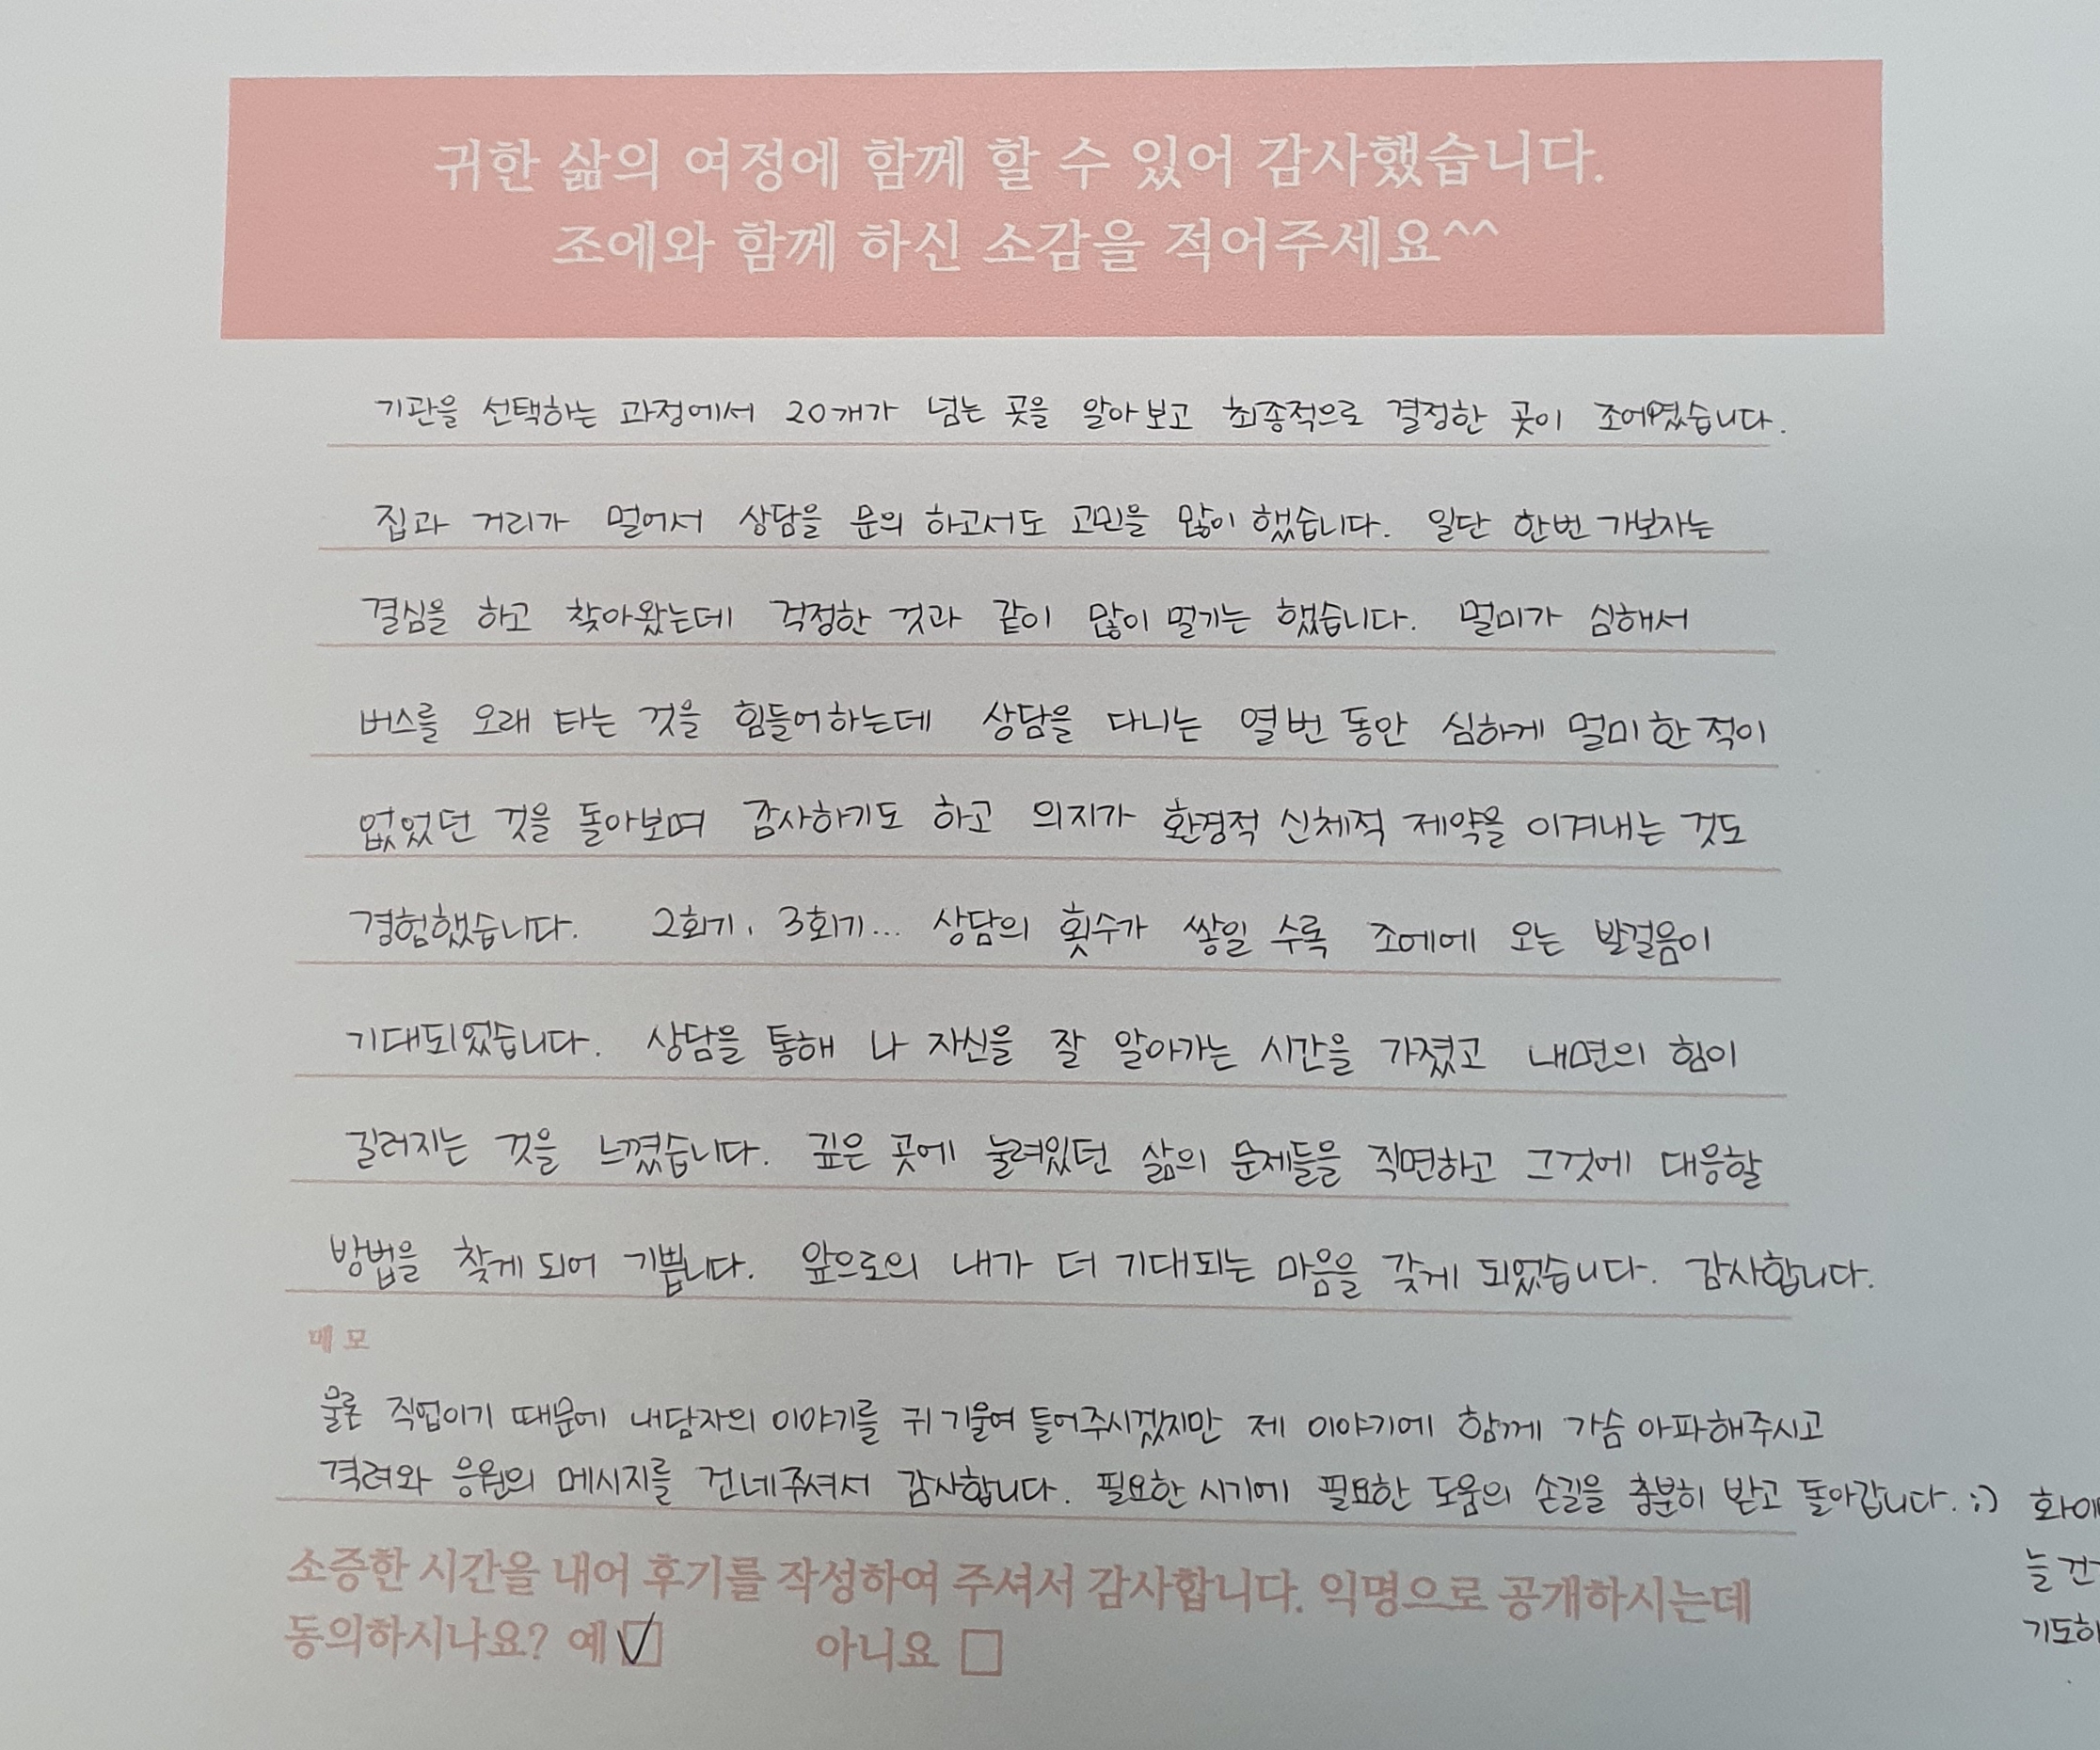 귀한 삶의 여정에 함께 할 수 있어 감사했습니다.
조에와 함께 하신 소감을 적어주세요^^
기관을 선택하는 과정에서 20개가 넘는 곳을 알아보고 최종적으로 결정한 곳이 조에였습니다.
집과 거리가 멀어서 상담을 문의 하고서도 고민을 많이 했습니다. 일단 한번 가보자는
결심을 하고 찾아왔는데 걱정한 것과 같이 많이 멀기는 했습니다. 멀미가 심해서
버스를 오래 타는 것을 힘들어하는데 상담을 다니는 열번 동안 심하게 멀미 한 적이
없었던 것을 돌아보며 감사하기도 하고 의지가 환경적 신체적 제약을 이겨내는 것도
경험했습니다. 2회기, 3회기... 상담의 횟수가 쌓일 수록 조에에 오는 발걸음이
기대되었습니다. 상담을 통해 나 자신을 잘 알아가는 시간을 가졌고 내면의 힘이
길러지는 것을 느꼈습니다. 깊은 곳에 눌려있던 삶의 문제들을 직면하고 그것에 대응할
방법을 찾게 되어 기쁩니다. 앞으로의 내가 더 기대되는 마음을 갖게 되었습니다. 감사합니다.
메모
물론 직업이기 때문에 내담자의 이야기를 귀 기울여 들어주시겠지만 제 이야기에 함께 가슴 아파해주시고
격려와 응원의 메시지를 건네주셔서 감사합니다. 필요한 시기에 필요한 도움의 손길을 충분히 받고 돌아갑니다. :)
늘
소중한 시간을 내어 후기를 작성하여 주셔서 감사합니다. 익명으로 공개하시는데
동의하시나요? 예 아니요